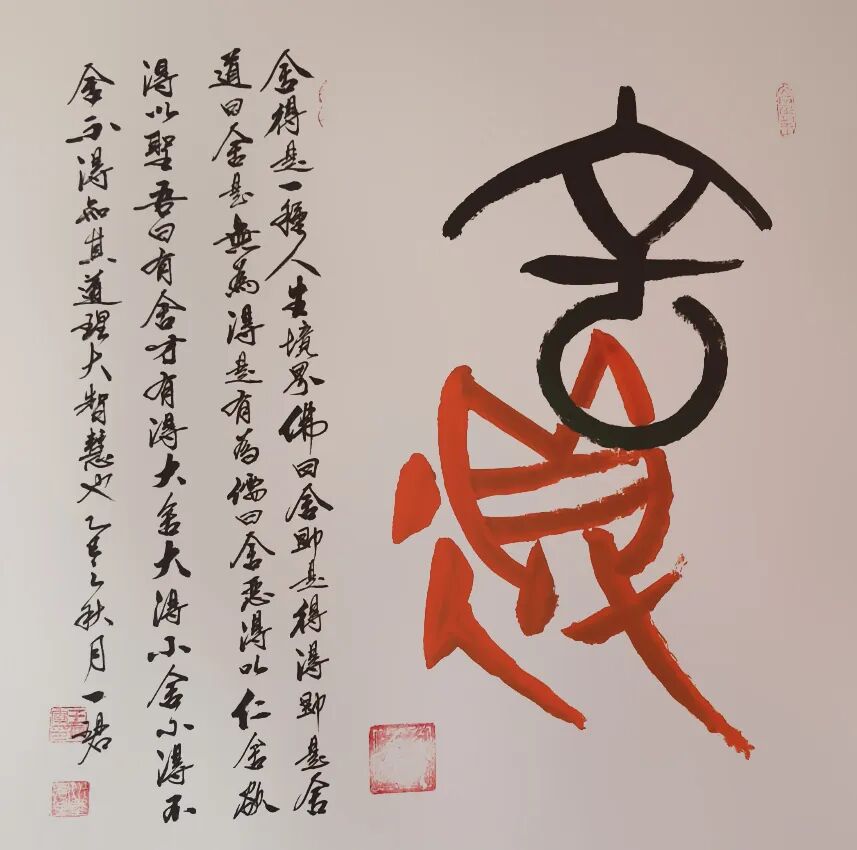 舍
得
舍得是一種人生境界佛曰舍即是得得即是舍
道曰舍是無為得是有為儒曰舍惡得以仁舍欲
得以聖吾曰有舍才有得大舍大得小舍小得不
舍不得知其道理大智慧也乙巳之秋月一珺